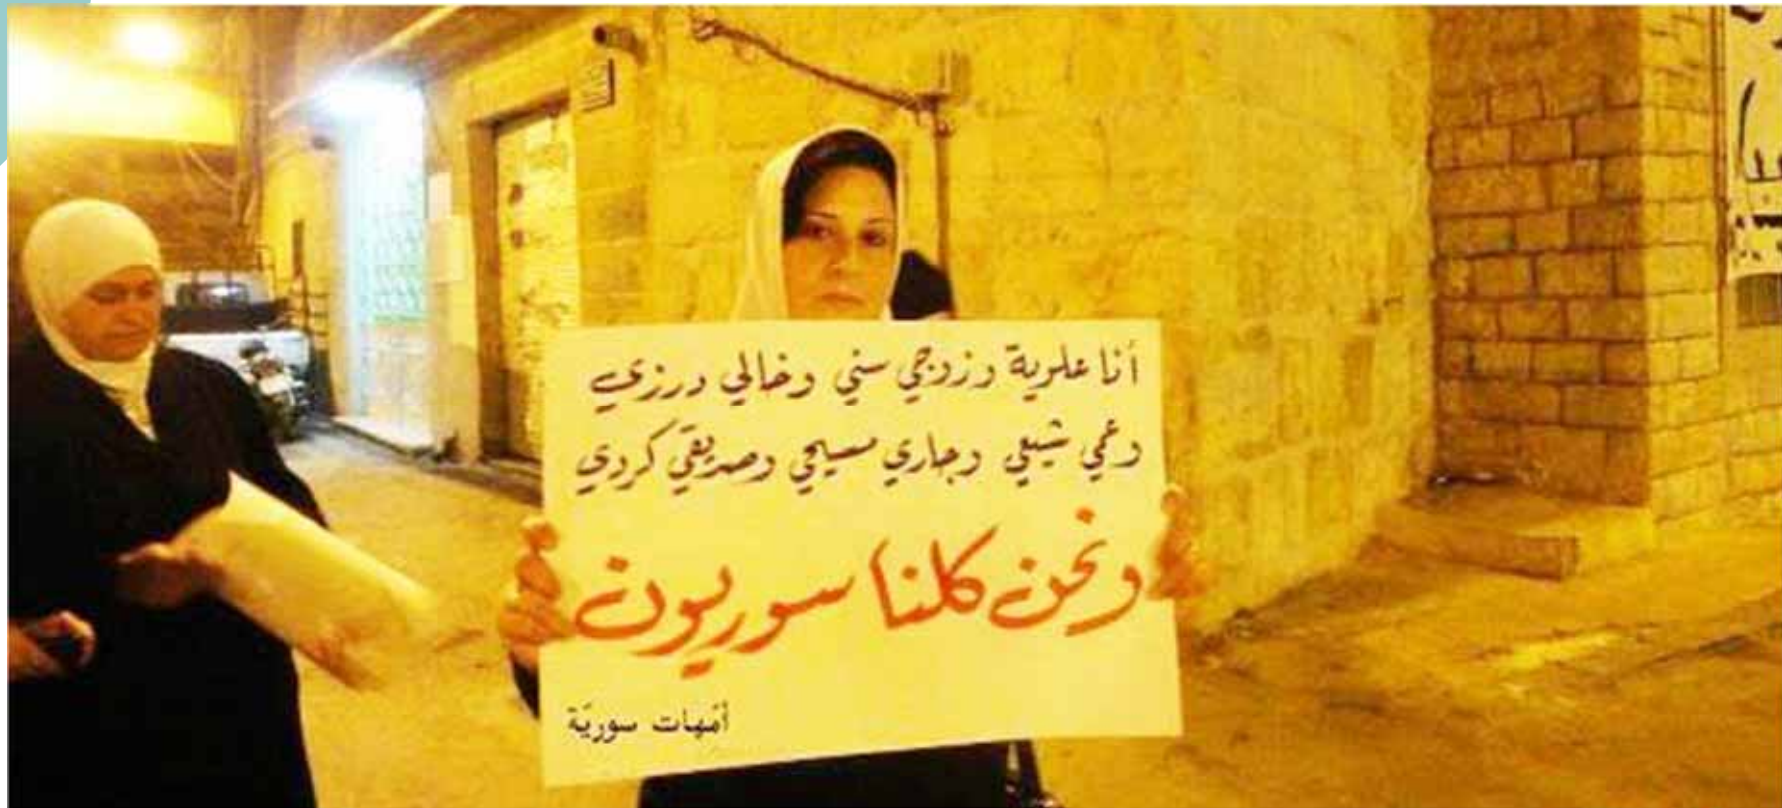 أنا علوية وزوجي سني وخالي درزي
وعمي شيعي وجاري مسيحي وصديقي كردي
ونحن كلنا سوريون
أمّهات سوريّة